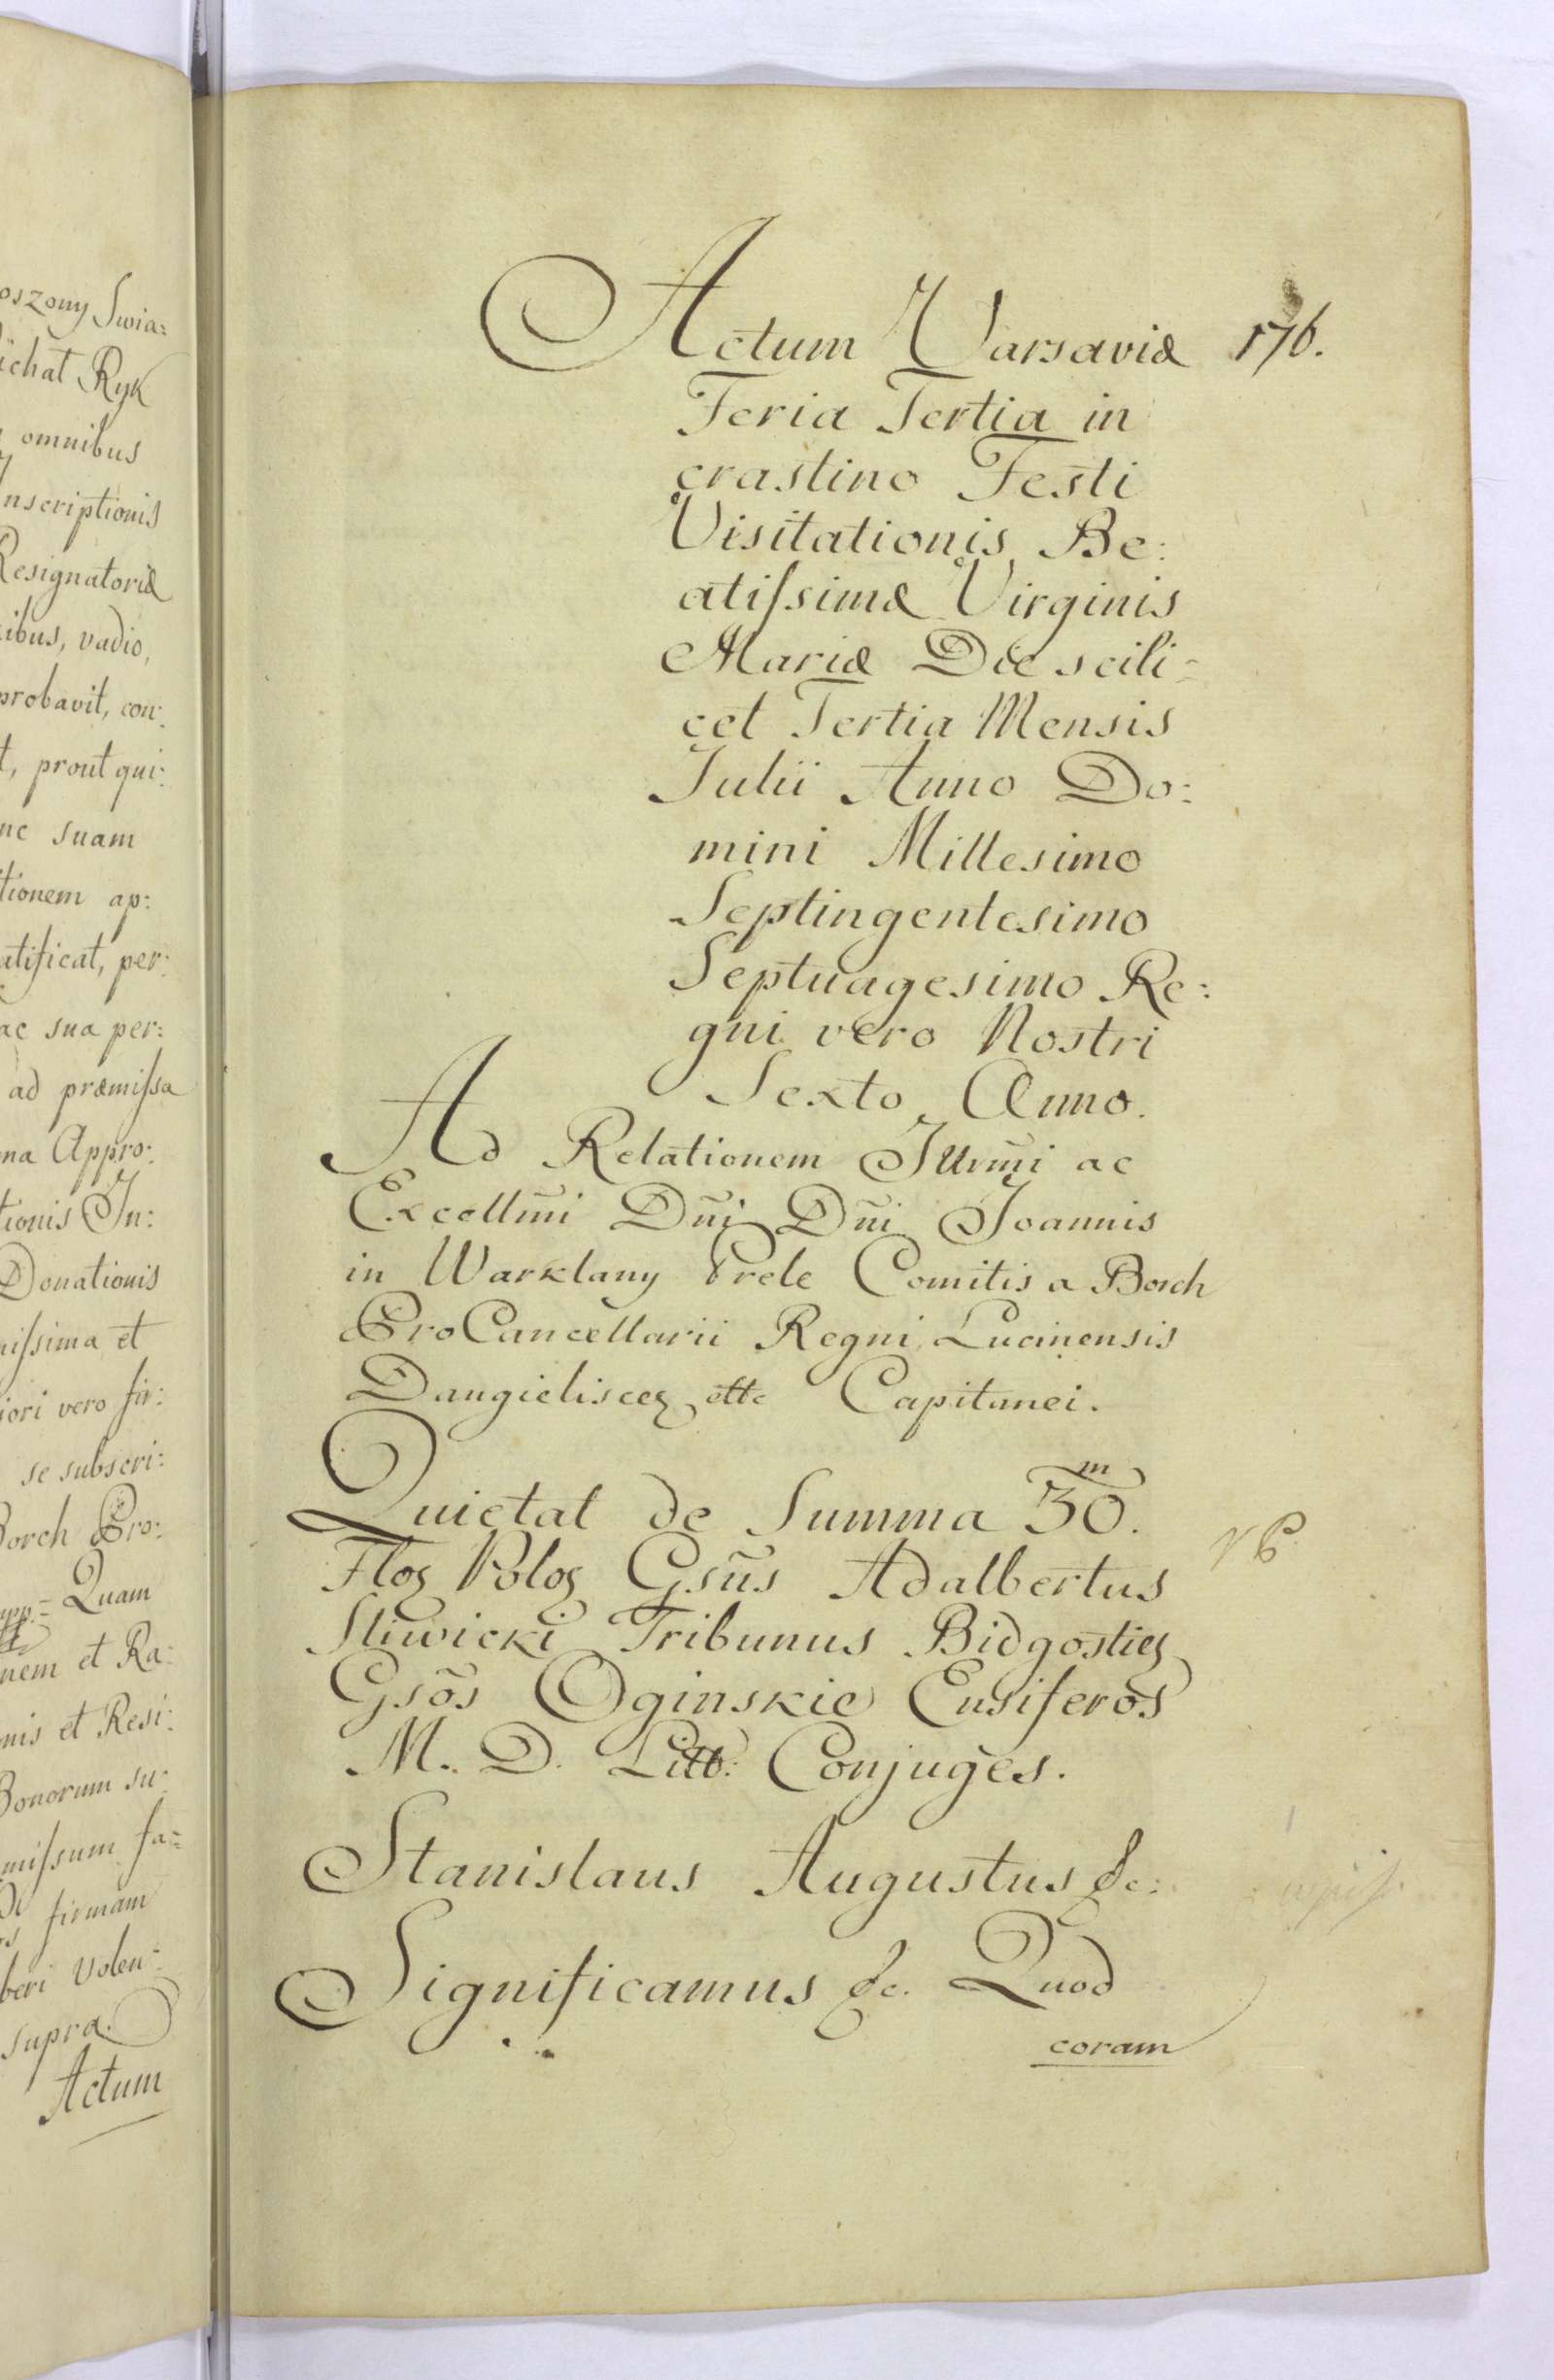 oszony Swia:
ichał Ryk
omnibus
nscriptionis
Resignatoriæ
ibus, vadio,
probavit, con:
t, prout qui:
nc suam
tionem ap:
atificat, per:
ac sua per:
ad præmissa
na Appro:
tionis In:
Donationis
nissima et
iori vero fir:
se subscri:
Borch Pro:
Quam
nem et Ra:
nis et Resi:
Bonorum su:
missum fa=
firmam
beri volen:
supra.
Actum
Actum Varsaviæ 176.
Feria Tertia in
crastino Festi
Visitationis Be:
atissimæ Virginis
Mariæ Die scili=
cet Tertia Mensis
Julii Anno Do:
mini Millesimo
Septingentesimo
Septuagesimo Re:
gni vero Nostri
Sexto Anno.
Ad Relationem Illrmi ac
Excellmi Dni Dni Joannis
in Warklany Prele Comitis a Borch
ProCancellarii Regni Lucinensis
Daugieliscen ettc Capitanei.
Quietat de Summa 30.m
Flor Polor Gsus Adalbertus
Sliwicki Tribunus Bidgostien
Gsos Oginskie Ensiferos
M. D. Litt: Conjuges.
Stanislaus Augustus &c:
Significamus &c. Quod
coram